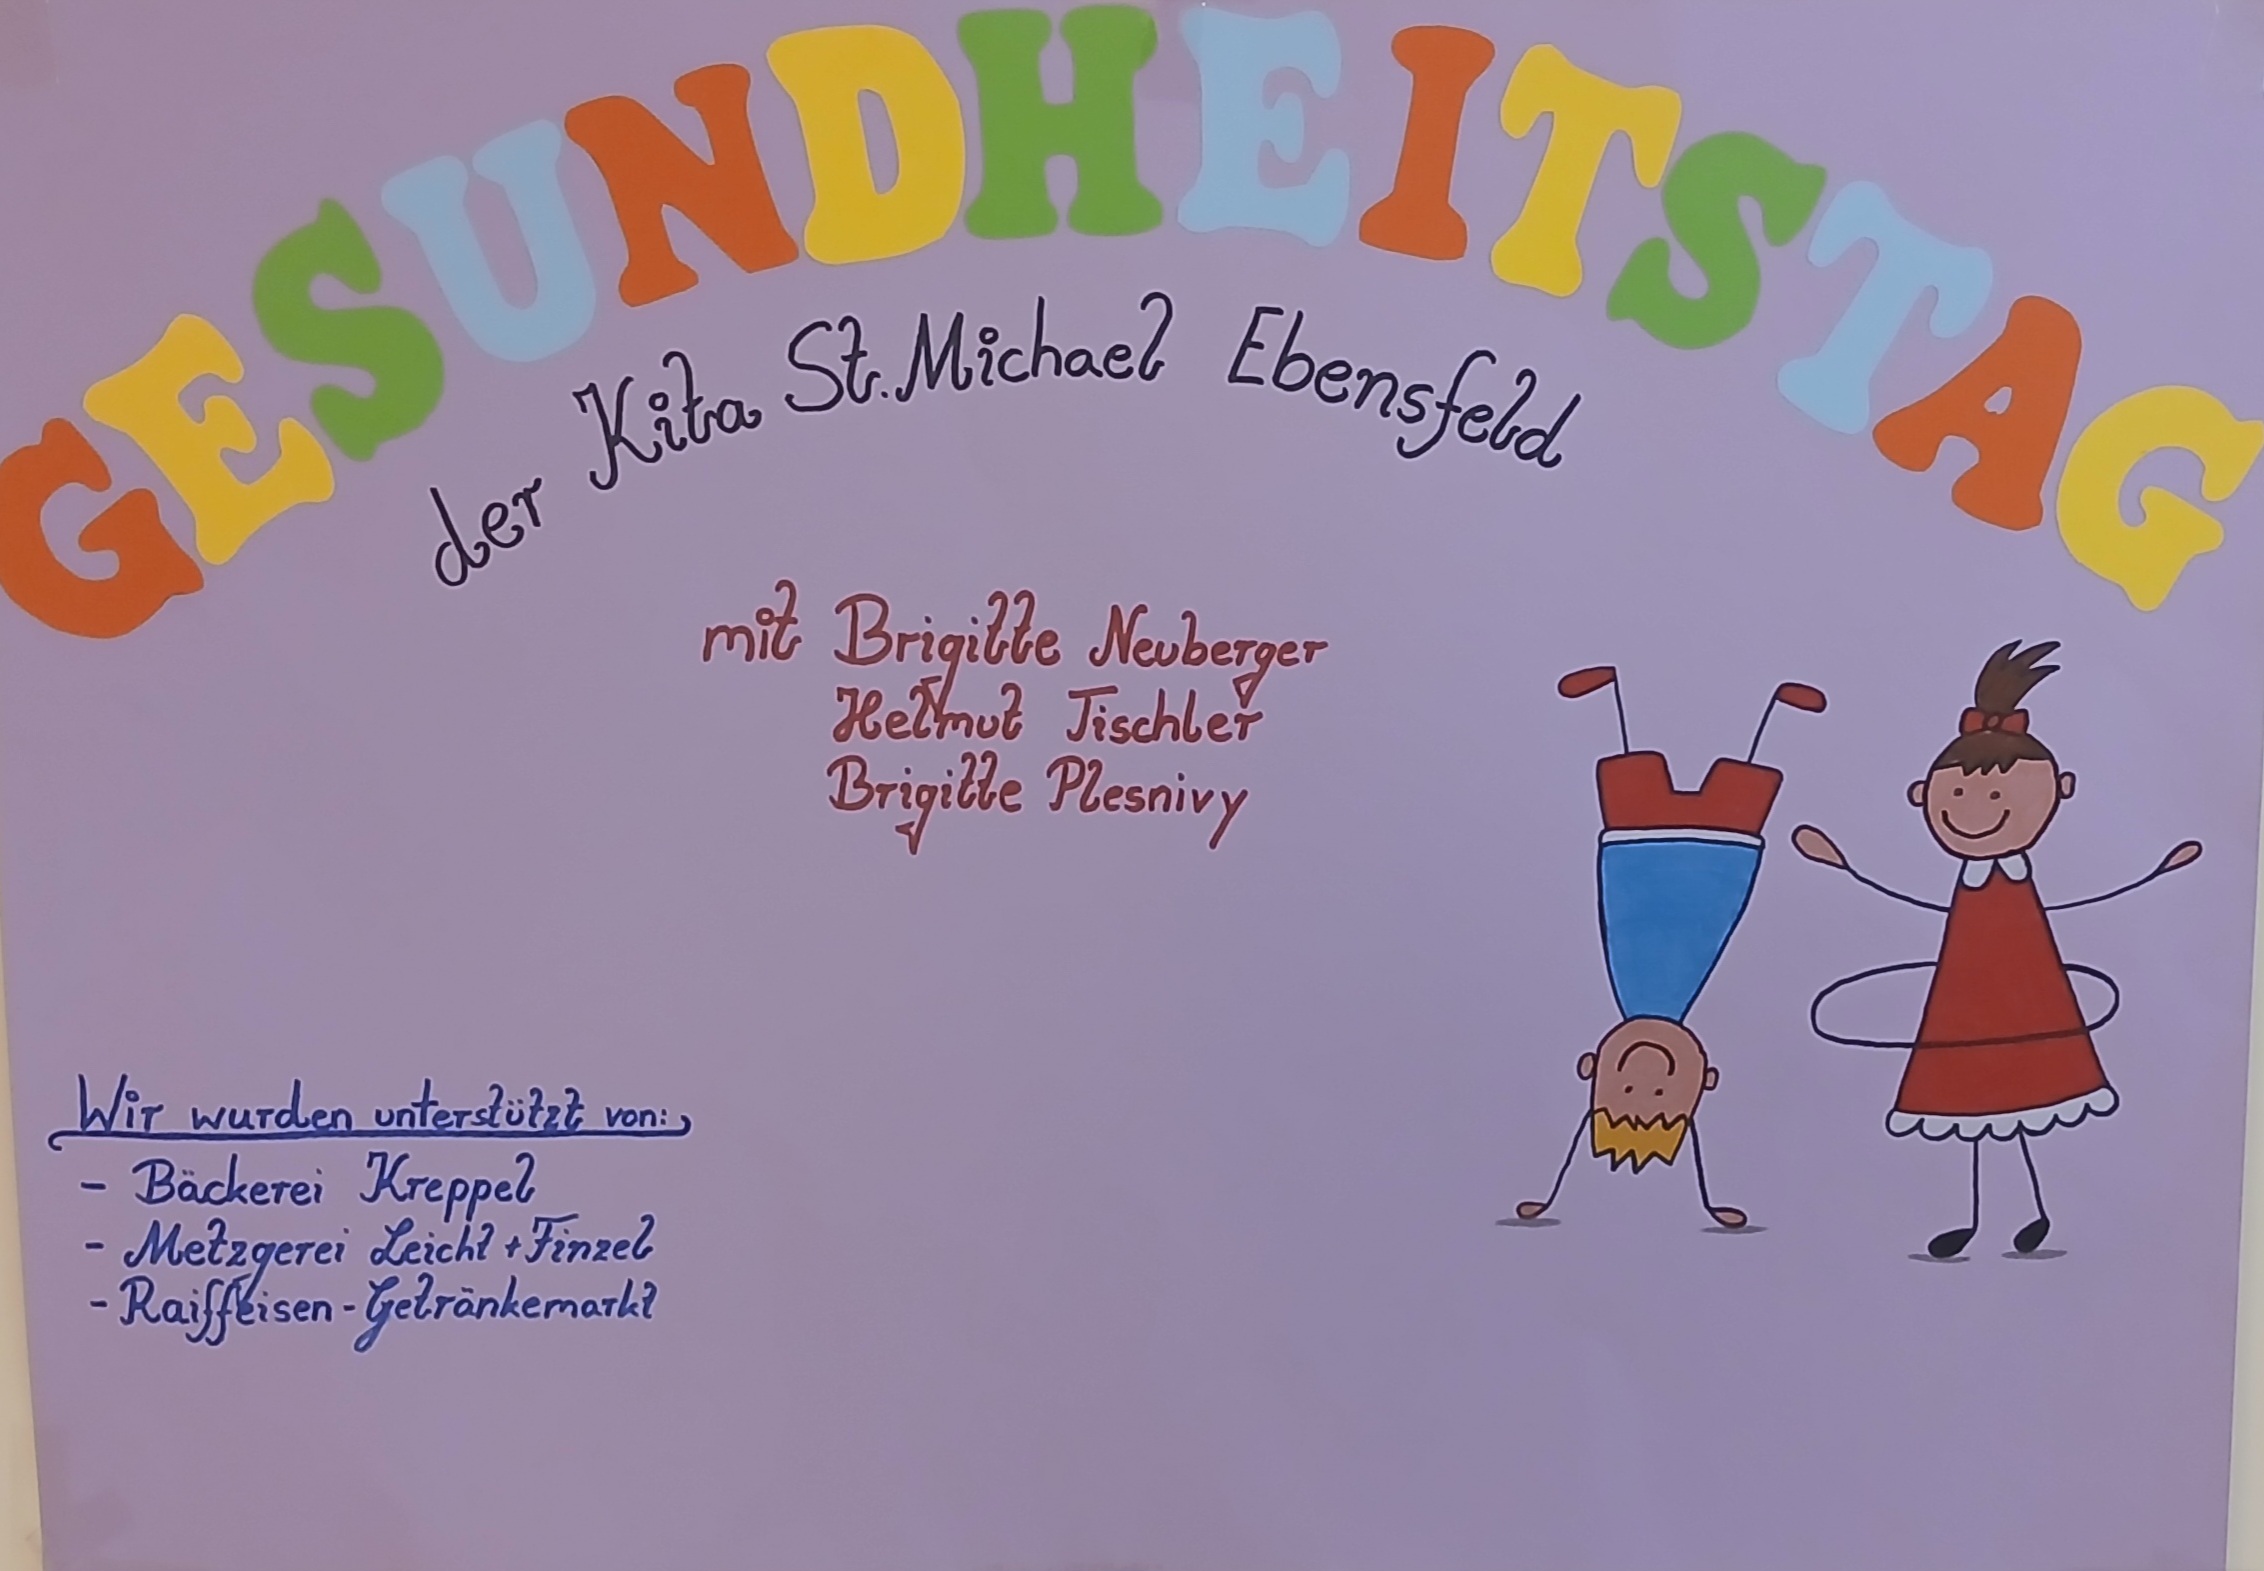 GESUNDHEITSTAG
der Kita St. Michael Ebensfeld
mit Brigitte Neuberger
Helmut Tischler
Brigitte Plesnivy
Wir wurden unterstützt von:
- Bäckerei Kreppel
- Metzgerei Leicht + Finzel
- Raiffeisen-Getränkemarkt